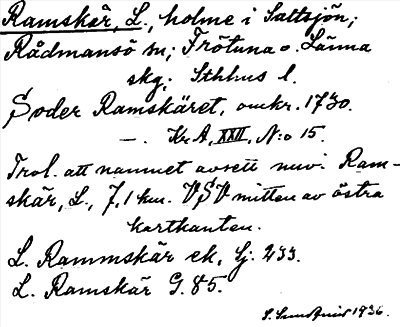 Ramskär, L., holme i Saltsjön;
Rådmansö sn; Frötuna o. Länna
skg; Sthlms l.
Söder Ramskäret, omkr. 1730.
—. Kr.A, XXII, N:o 15.
Trol. att namnet avsett nuv. Ram-
skär, L., 7,1 km. VSV mitten av östra
kartkanten.
L. Rammskär ek, Sj. 233.
L. Ramskär G. 85.
1936.